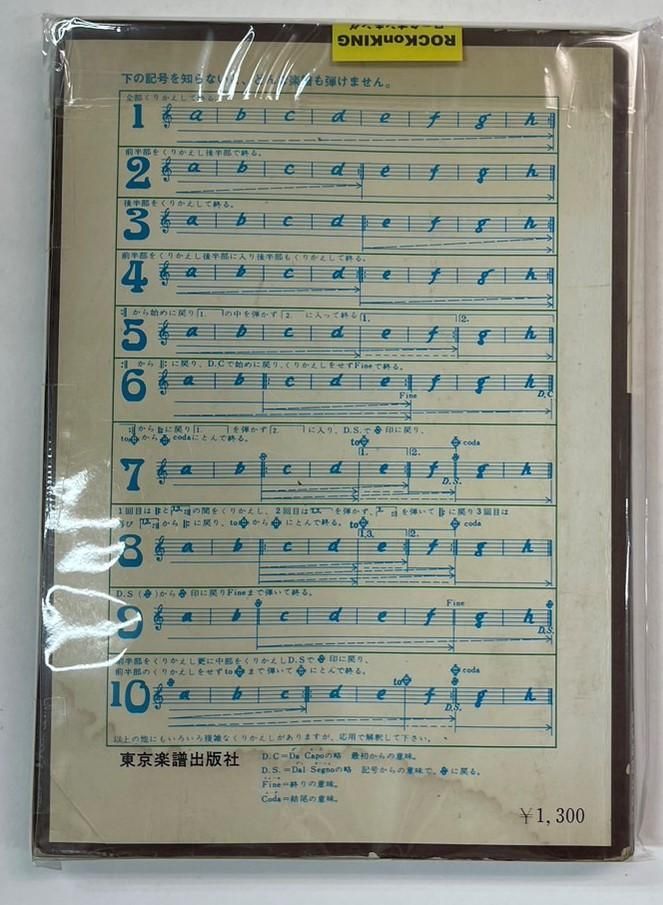 ROCKonKING
ロックオンキング
下の記号を知らない
楽譜も弾けません。
全部くりかえして終る。
1 a b c d e f g h
前半部をくりかえし後半部で終る。
2 a b c d e f g h
後半部をくりかえして終る。
3 a b c d e f g h
前半部をくりかえし後半部に入り後半部もくりかえして終る。
4 a b c d e f g h
から始めに戻り 1. の中を弾かず 2. に入って終る 1. 2.
5 a b c d e f g h
から に戻り、D.Cで始めに戻り、くりかえしをせずFineで終る。
6 a b c d e f g h
Fine D.C
から に戻り 1. を弾かず 2. に入り、D.S.で 印に戻り、
to から codaにとんで終る。 to coda
1. 2.
7 a b c d e f g h
D.S.
1回目は と の間をくりかえし、2回目は を弾かず、 を弾いて に戻り3回目は
再び から に戻り、to から にとんで終る。 to coda
1.3. 2.
8 a b c d e f g h
D.S ( )から 印に戻りFineまで弾いて終る。
Fine
9 a b c d e f g h
D.S.
前半部をくりかえし更に中部をくりかえしD.Sで 印に戻り、
前半部のくりかえしをせずto まで弾いて にとんで終る。 coda
to
10 a b c d e f g h
D.S.
以上の他にもいろいろ複雑なくりかえしがありますが、応用で解釈して下さい。
東京楽譜出版社
D.C=Da Capoの略 最初からの意味。
D.S.=Dal Segnoの略 記号からの意味で、 に戻る。
Fine=終りの意味。
Coda=結尾の意味。
¥1,300